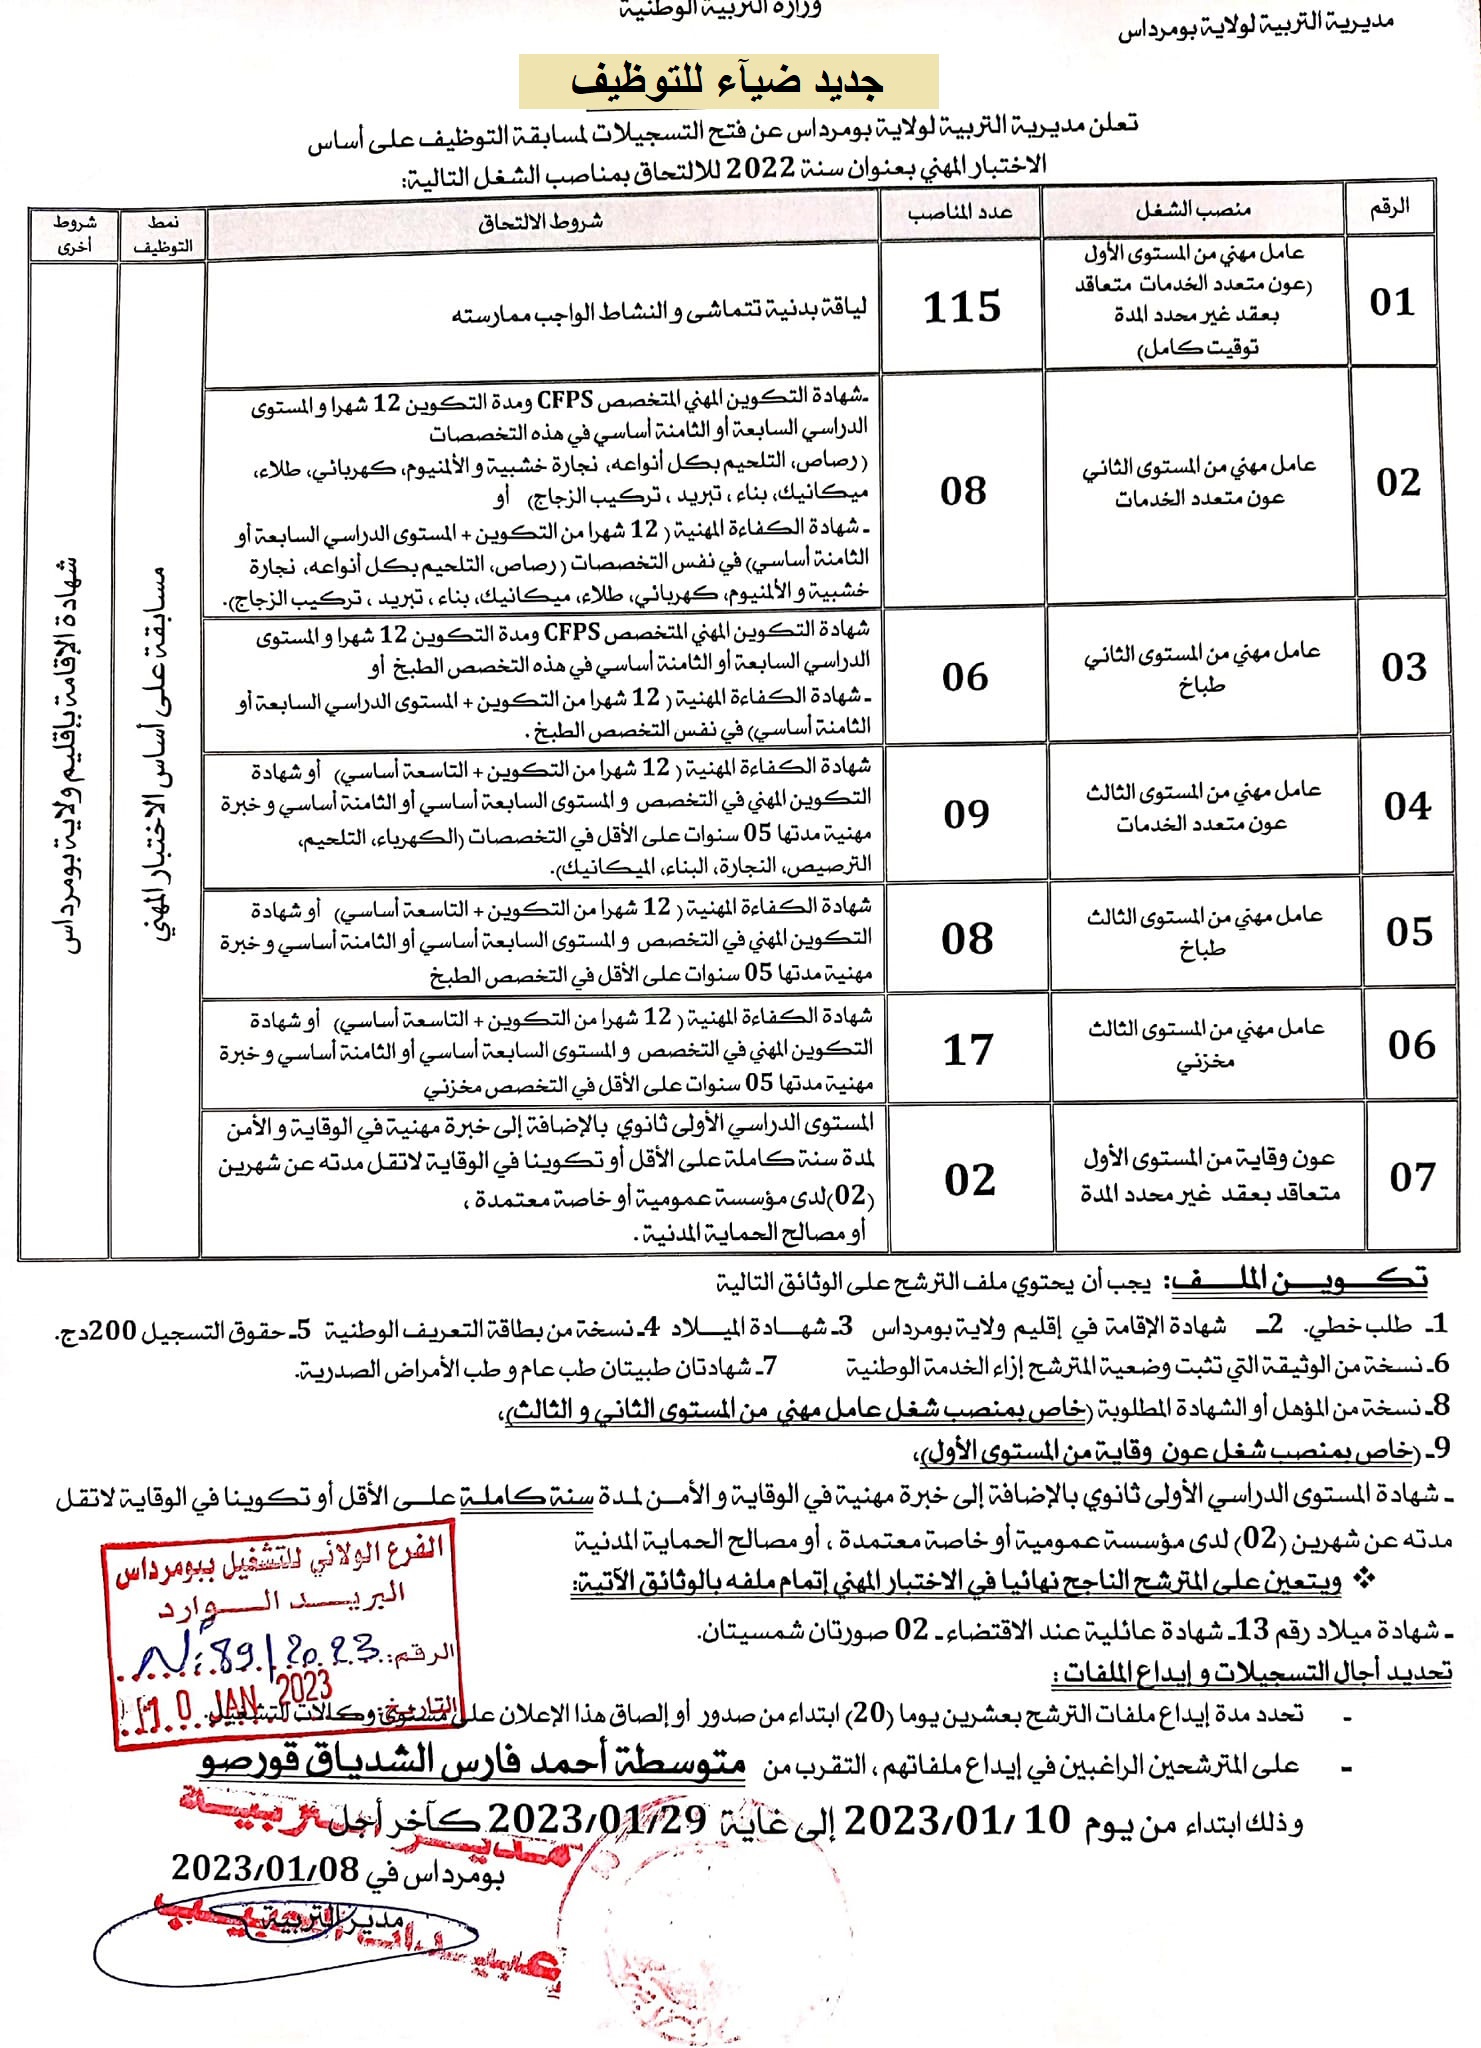 وزارة التربية الوطنية
مديرية التربية لولاية بومرداس
جديد ضيآء للتوظيف
تعلن مديرية التربية لولاية بومرداس عن فتح التسجيلات لمسابقة التوظيف على أساس
الاختبار المهني بعنوان سنة 2022 للالتحاق بمناصب الشغل التالية:
الرقم
منصب الشغل
عدد المناصب
شروط الالتحاق
نمط
التوظيف
شروط
أخرى
01
عامل مهني من المستوى الأول
(عون متعدد الخدمات متعاقد
بعقد غير محدد المدة
توقيت كامل)
115
لياقة بدنية تتماشى و النشاط الواجب ممارسته
02
عامل مهني من المستوى الثاني
عون متعدد الخدمات
08
ـ شهادة التكوين المهني المتخصص CFPS ومدة التكوين 12 شهرا و المستوى
الدراسي السابعة أو الثامنة أساسي في هذه التخصصات
(رصاص، التلحيم بكل أنواعه، نجارة خشبية و الألمنيوم، كهربائي، طلاء،
ميكانيك، بناء ، تبريد ، تركيب الزجاج) أو
ـ شهادة الكفاءة المهنية ( 12 شهرا من التكوين + المستوى الدراسي السابعة أو
الثامنة أساسي) في نفس التخصصات (رصاص، التلحيم بكل أنواعه، نجارة
خشبية و الألمنيوم، كهربائي، طلاء، ميكانيك، بناء ، تبريد ، تركيب الزجاج).
03
عامل مهني من المستوى الثاني
طباخ
06
شهادة التكوين المهني المتخصص CFPS ومدة التكوين 12 شهرا و المستوى
الدراسي السابعة أو الثامنة أساسي في هذه التخصص الطبخ أو
ـ شهادة الكفاءة المهنية ( 12 شهرا من التكوين + المستوى الدراسي السابعة أو
الثامنة أساسي) في نفس التخصص الطبخ .
04
عامل مهني من المستوى الثالث
عون متعدد الخدمات
09
شهادة الكفاءة المهنية ( 12 شهرا من التكوين + التاسعة أساسي) أو شهادة
التكوين المهني في التخصص و المستوى السابعة أساسي أو الثامنة أساسي و خبرة
مهنية مدتها 05 سنوات على الأقل في التخصصات (الكهرباء، التلحيم،
الترصيص، النجارة، البناء، الميكانيك).
05
عامل مهني من المستوى الثالث
طباخ
08
شهادة الكفاءة المهنية ( 12 شهرا من التكوين + التاسعة أساسي) أو شهادة
التكوين المهني في التخصص و المستوى السابعة أساسي أو الثامنة أساسي و خبرة
مهنية مدتها 05 سنوات على الأقل في التخصص الطبخ
06
عامل مهني من المستوى الثالث
مخزني
17
شهادة الكفاءة المهنية ( 12 شهرا من التكوين + التاسعة أساسي) أو شهادة
التكوين المهني في التخصص و المستوى السابعة أساسي أو الثامنة أساسي و خبرة
مهنية مدتها 05 سنوات على الأقل في التخصص مخزني
07
عون وقاية من المستوى الأول
متعاقد بعقد غير محدد المدة
02
المستوى الدراسي الأولى ثانوي بالإضافة إلى خبرة مهنية في الوقاية و الأمن
لمدة سنة كاملة على الأقل أو تكوينا في الوقاية لا تقل مدته عن شهرين
(02)لدى مؤسسة عمومية أو خاصة معتمدة ،
أو مصالح الحماية المدنية .
مسابقة على أساس الاختبار المهني
شهادة الإقامة بإقليم ولاية بومرداس
تكـــويـــن الملـــف: يجب أن يحتوي ملف الترشح على الوثائق التالية
1ـ طلب خطي. 2ـ شهادة الإقامة في إقليم ولاية بومرداس 3ـ شهـــادة الميـــلاد 4ـ نسخة من بطاقة التعريف الوطنية 5ـ حقوق التسجيل 200دج.
6ـ نسخة من الوثيقة التي تثبت وضعية المترشح إزاء الخدمة الوطنية 7ـ شهادتان طبيتان طب عام و طب الأمراض الصدرية.
8ـ نسخة من المؤهل أو الشهادة المطلوبة (خاص بمنصب شغل عامل مهني من المستوى الثاني و الثالث)،
9ـ (خاص بمنصب شغل عون وقاية من المستوى الأول)،
ـ شهادة المستوى الدراسي الأولى ثانوي بالإضافة إلى خبرة مهنية في الوقاية و الأمـن لمـدة سنة كاملـة علـى الأقل أو تكوينا في الوقاية لا تقل
مدته عن شهرين (02) لدى مؤسسة عمومية أو خاصة معتمدة ، أو مصالح الحماية المدنية
❖ ويتعين على المترشح الناجح نهائيا في الاختبار المهني إتمام ملفه بالوثائق الآتية:
ـ شهادة ميلاد رقم 13ـ شهادة عائلية عند الاقتضاء ـ 02 صورتان شمسيتان.
تحديد أجال التسجيلات و إيداع الملفات :
الفرع الولائي للتشغيل ببومرداس
البريـــد الـــوارد
الرقم: N: 89/2023
التاريخ: 10 JAN 2023
- تحدد مدة إيداع ملفات الترشح بعشرين يوما (20) ابتداء من صدور أو إلصاق هذا الإعلان على مستوى وكالات التشغيل.
- على المترشحين الراغبين في إيداع ملفاتهم ، التقرب من متوسطة أحمد فارس الشدياق قورصو
وذلك ابتداء من يوم 10 /2023/01 إلى غاية 2023/01/29 كآخر أجل
بومرداس في 2023/01/08
مدير التربية
مديـر التربيـة